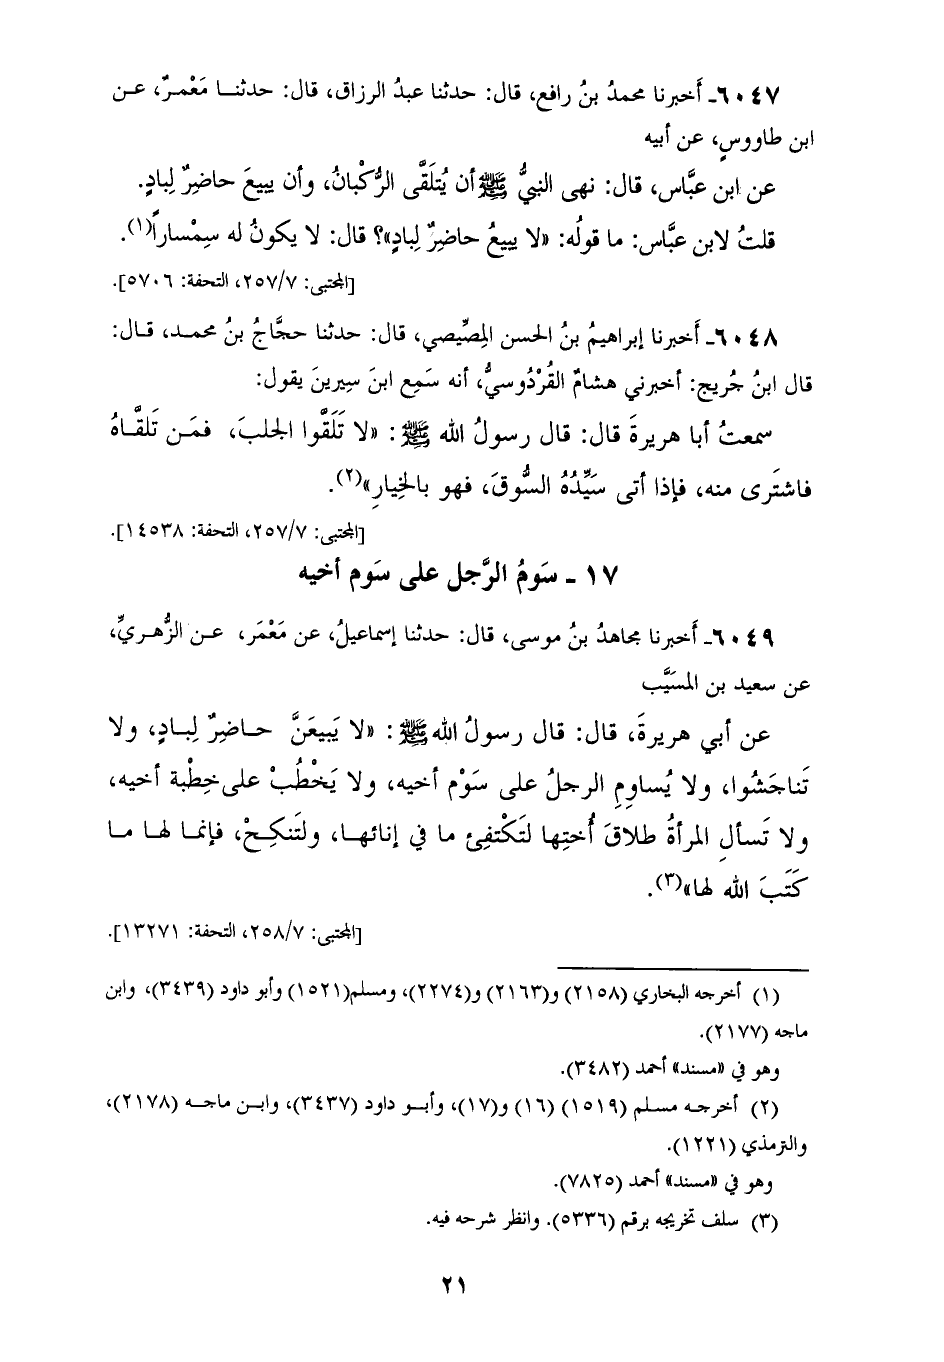 ٦٠٤٧ـ أَخبرنا محمدُ بنُ رافع، قال: حدثنا عبدُ الرزاق، قال: حدثنـا مَعْمـرٌ، عـن
ابن طاووسٍ، عن أبيه
عن ابن عبَّاس، قال: نهى النبيُّ ﷺ أن يُتلَقَّى الرُّكْبانُ، وأن يبيعَ حاضِرٌ لِبادٍ.
قلتُ لابن عبَّاس: ما قولُه: «لا يبيعُ حاضِرٌ لِبادٍ»؟ قال: لا يكونُ له سِمْساراً(١).
[المجتبى: ٢٥٧/٧، التحفة: ٥٧٠٦].
٦٠٤٨ـ أَخبرنا إبراهيمُ بنُ الحسن المِصِّيصي، قال: حدثنا حجَّاجُ بنُ محمـد، قـال:
قال ابنُ جُريج: أخبرني هشامٌ القُرْدُوسيُّ، أنه سَمِع ابنَ سِيرينَ يقول:
سمعتُ أبا هريرةَ قال: قال رسولُ الله ﷺ: «لا تَلَقَّوا الجلبَ، فمَـن تَلقَّـاهُ
فاشتَرى منه، فإذا أتى سَيِّدُهُ السُّوقَ، فهو بالخِيارِ»(٢).
[المجتبى: ٢٥٧/٧، التحفة: ١٤٥٣٨].
١٧ ـ سَومُ الرَّجل على سَوم أخيه
٦٠٤٩ـ أَخبرنا مجاهدُ بنُ موسى، قال: حدثنا إسماعيلُ، عن مَعْمَر، عـن الزُّهـريِّ،
عن سعيد بن المسَيَّب
عن أبي هريرةَ، قال: قال رسولُ الله ﷺ: «لا يَبيعَنَّ حـاضِرٌ لِبـادٍ، ولا
تَناجَشُوا، ولا يُساوِمِ الرجلُ على سَوْم أخيه، ولا يَخْطُبْ على خِطْبة أخيه،
ولا تَسألِ المرأةُ طلاقَ أُختِها لتَكْتفِئَ ما في إنائهـا، ولتَنكِحْ، فإنمـا لهـا مـا
كَتَبَ الله لها»(٣).
[المجتبى: ٢٥٨/٧، التحفة: ١٣٢٧١].
(١) أخرجه البخاري (٢١٥٨) و(٢١٦٣) و(٢٢٧٤)، ومسلم(١٥٢١) وأبو داود (٣٤٣٩)، وابن
ماجه (٢١٧٧).
وهو في «مسند» أحمد (٣٤٨٢).
(٢) أخرجـه مسلم (١٥١٩) (١٦) و(١٧)، وأبـو داود (٣٤٣٧)، وابـن ماجـه (٢١٧٨)،
والترمذي (١٢٢١).
وهو في «مسند» أحمد (٧٨٢٥).
(٣) سلف تخريجه برقم (٥٣٣٦). وانظر شرحه فيه.
٢١